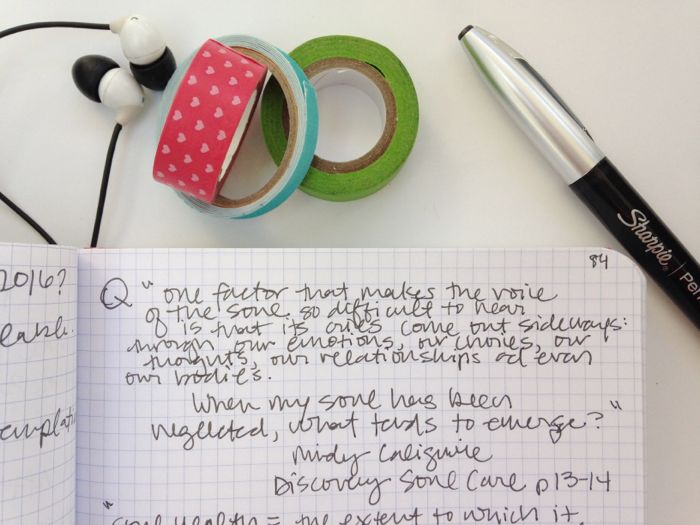 2016?
84
Q "one factor that makes the voice
of the soul so difficult to hear
is that its cries come out sideways:
through our emotions, our choices, our
thoughts, our relationships ad even
our bodies.
When my soul has been
neglected, what tends to emerge?"
Mindy Caliguire
Discovery Soul Care p13-14
"Soul Health = the extent to which it
Sharpie Pen